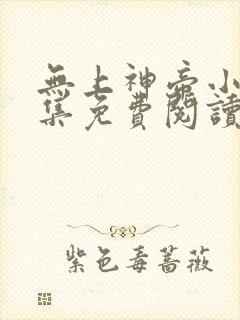 無上神帝小
集免費閱讀
紫色毒薔薇